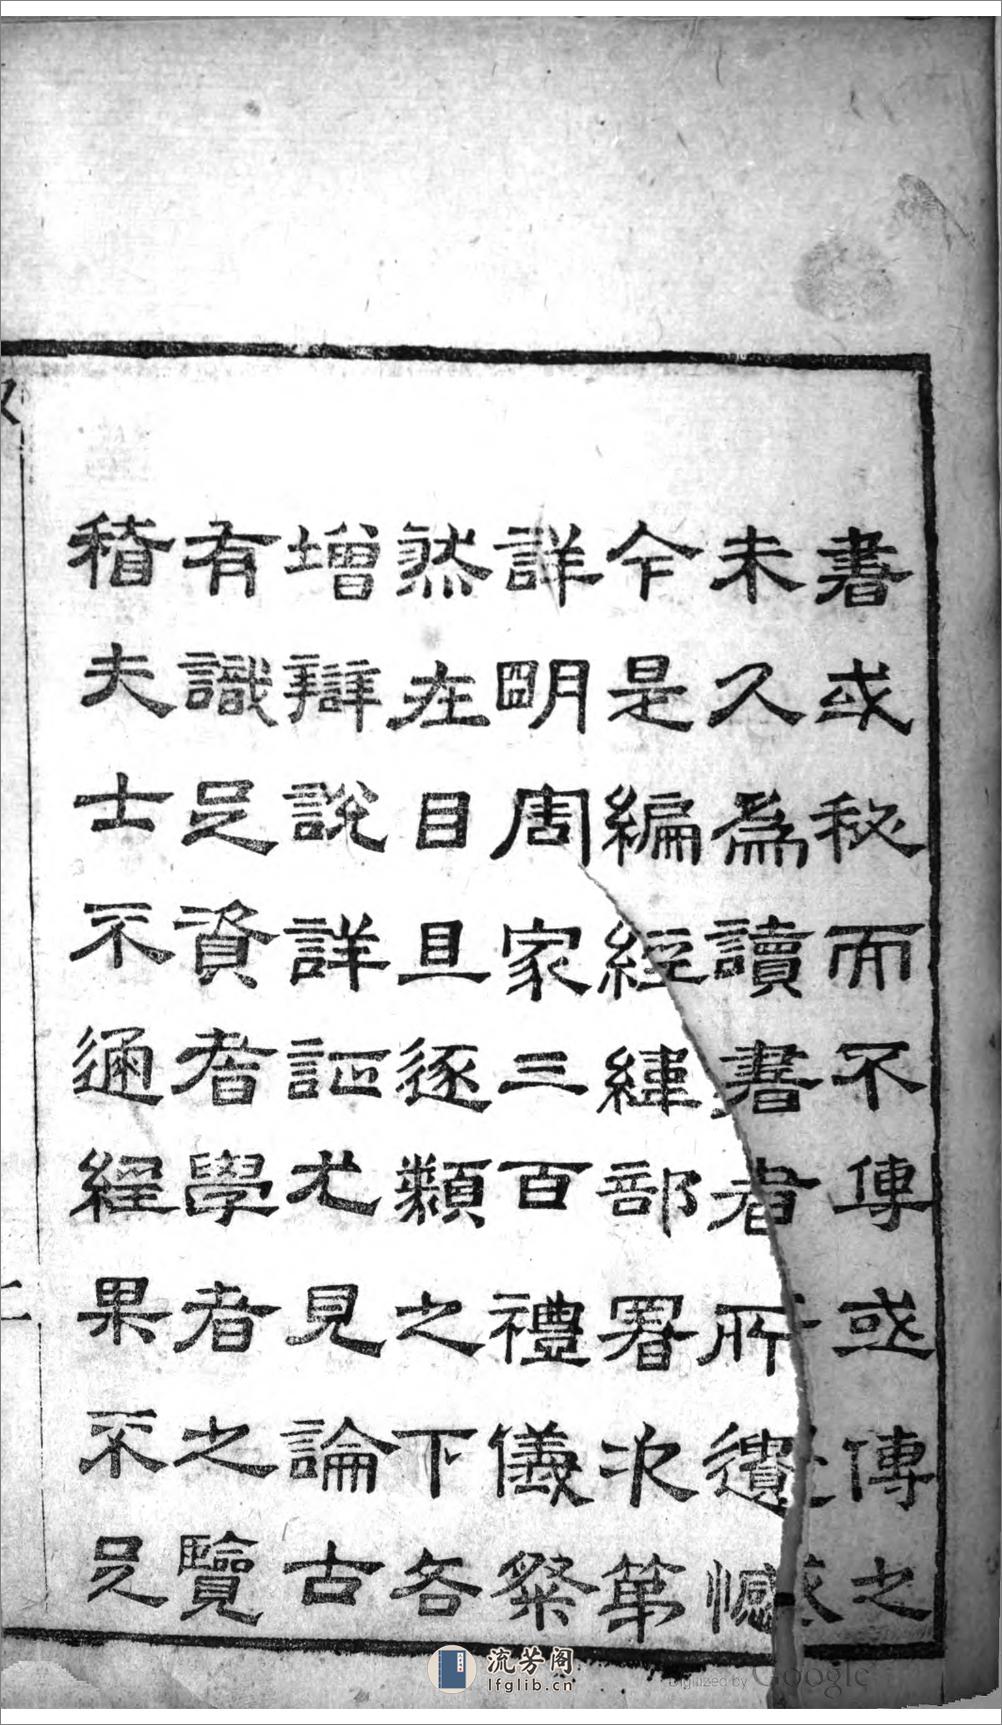 書或秘而不傳或傳之
未久為讀書者所遺憾
今是編經緯部署次第
詳明周家三百禮儀粲
然在目且逐類之下各
增辯說詳証尤見論古
有識足資者學者之覽
稽夫士不通經果不足
流芳阁
lfglib.cn
Digitized by Google